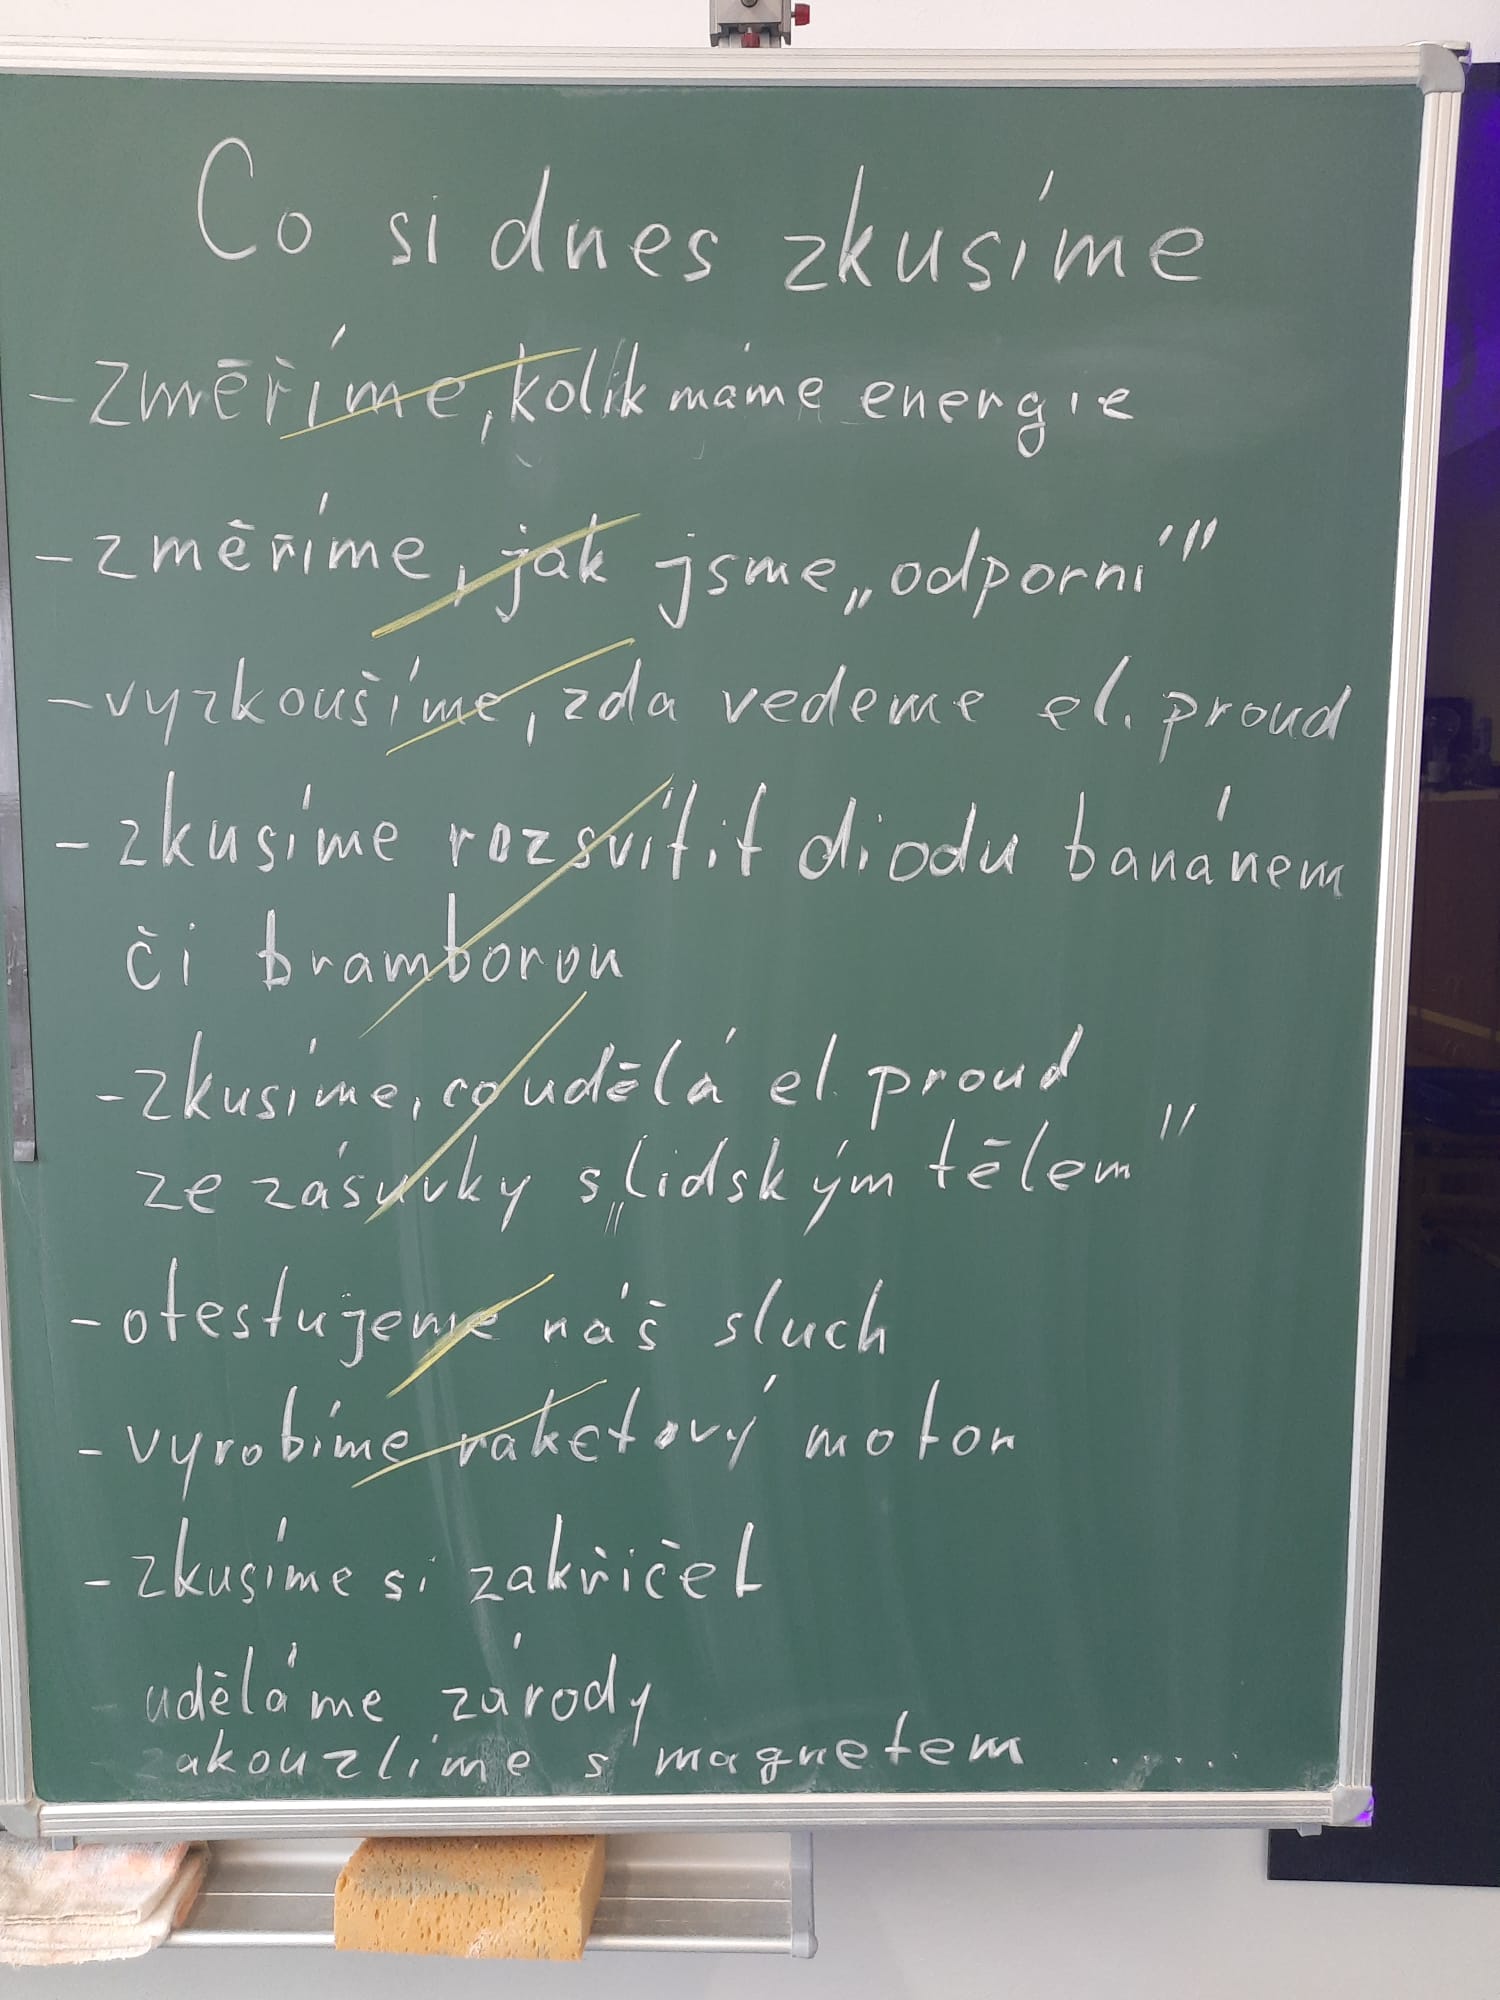 Co si dnes zkusíme
- změříme, kolik máme energie
- změříme, jak jsme „odporní"
- vyzkoušíme, zda vedeme el. proud
- zkusíme rozsvítit diodu banánem
či bramborou
- zkusíme, co udělá el. proud
ze zásuvky s „lidským tělem"
- otestujeme náš sluch
- vyrobíme raketový motor
- zkusíme si zakřičet
uděláme závody
zakouzlíme s magnetem .....